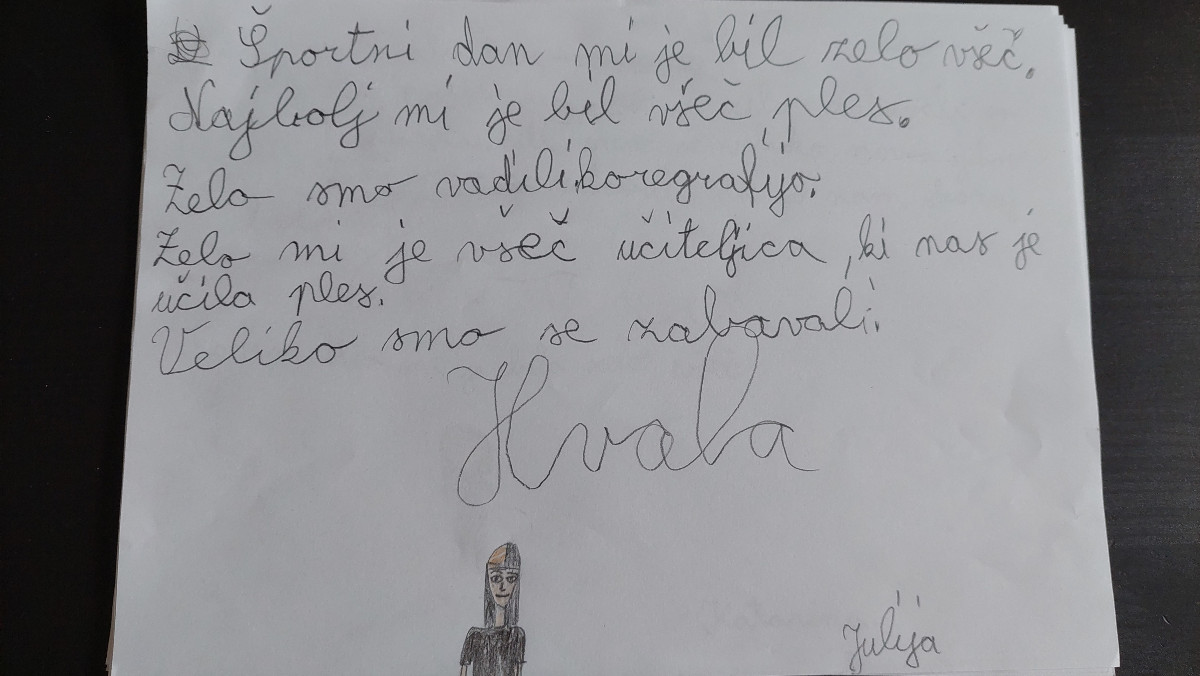 Športni dan mi je bil zelo všeč.
Najbolj mi je bil všeč ples.
Zelo smo vadili koregrafijo.
Zelo mi je všeč učiteljica, ki nas je
učila ples.
Veliko smo se zabavali.
Hvala
Julija